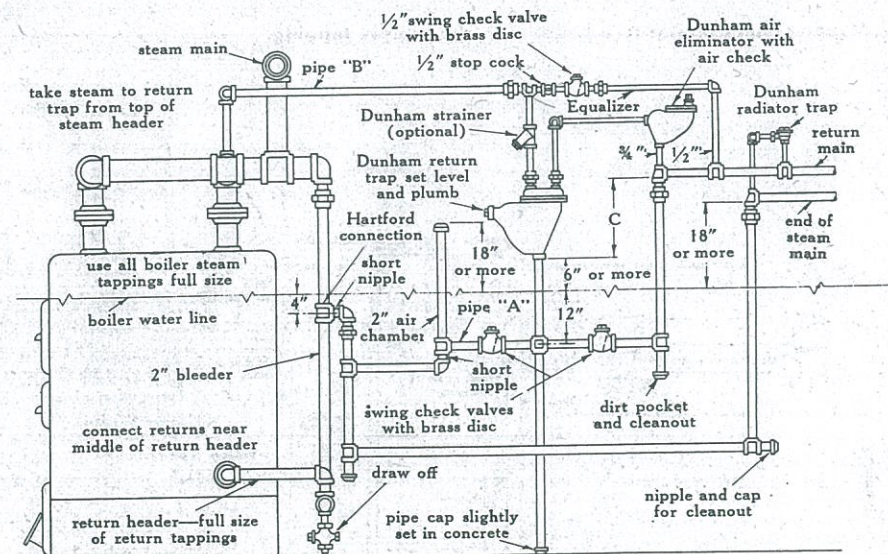 ½" swing check valve
with brass disc
Dunham air
eliminator with
air check
steam main
pipe "B"
½" stop cock
take steam to return
trap from top of
steam header
Equalizer
Dunham
radiator trap
Dunham strainer
(optional)
return
main
¾"
½"
Dunham return
trap set level
and plumb
C
Hartford
connection
18"
or more
18"
or more
end of
steam
main
use all boiler steam
tappings full size
short
nipple
6" or more
4"
boiler water line
2" air
chamber
pipe "A"
12"
2" bleeder
short
nipple
swing check valves
with brass disc
dirt pocket
and cleanout
connect returns near
middle of return header
draw off
nipple and cap
for cleanout
return header—full size
of return tappings
pipe cap slightly
set in concrete